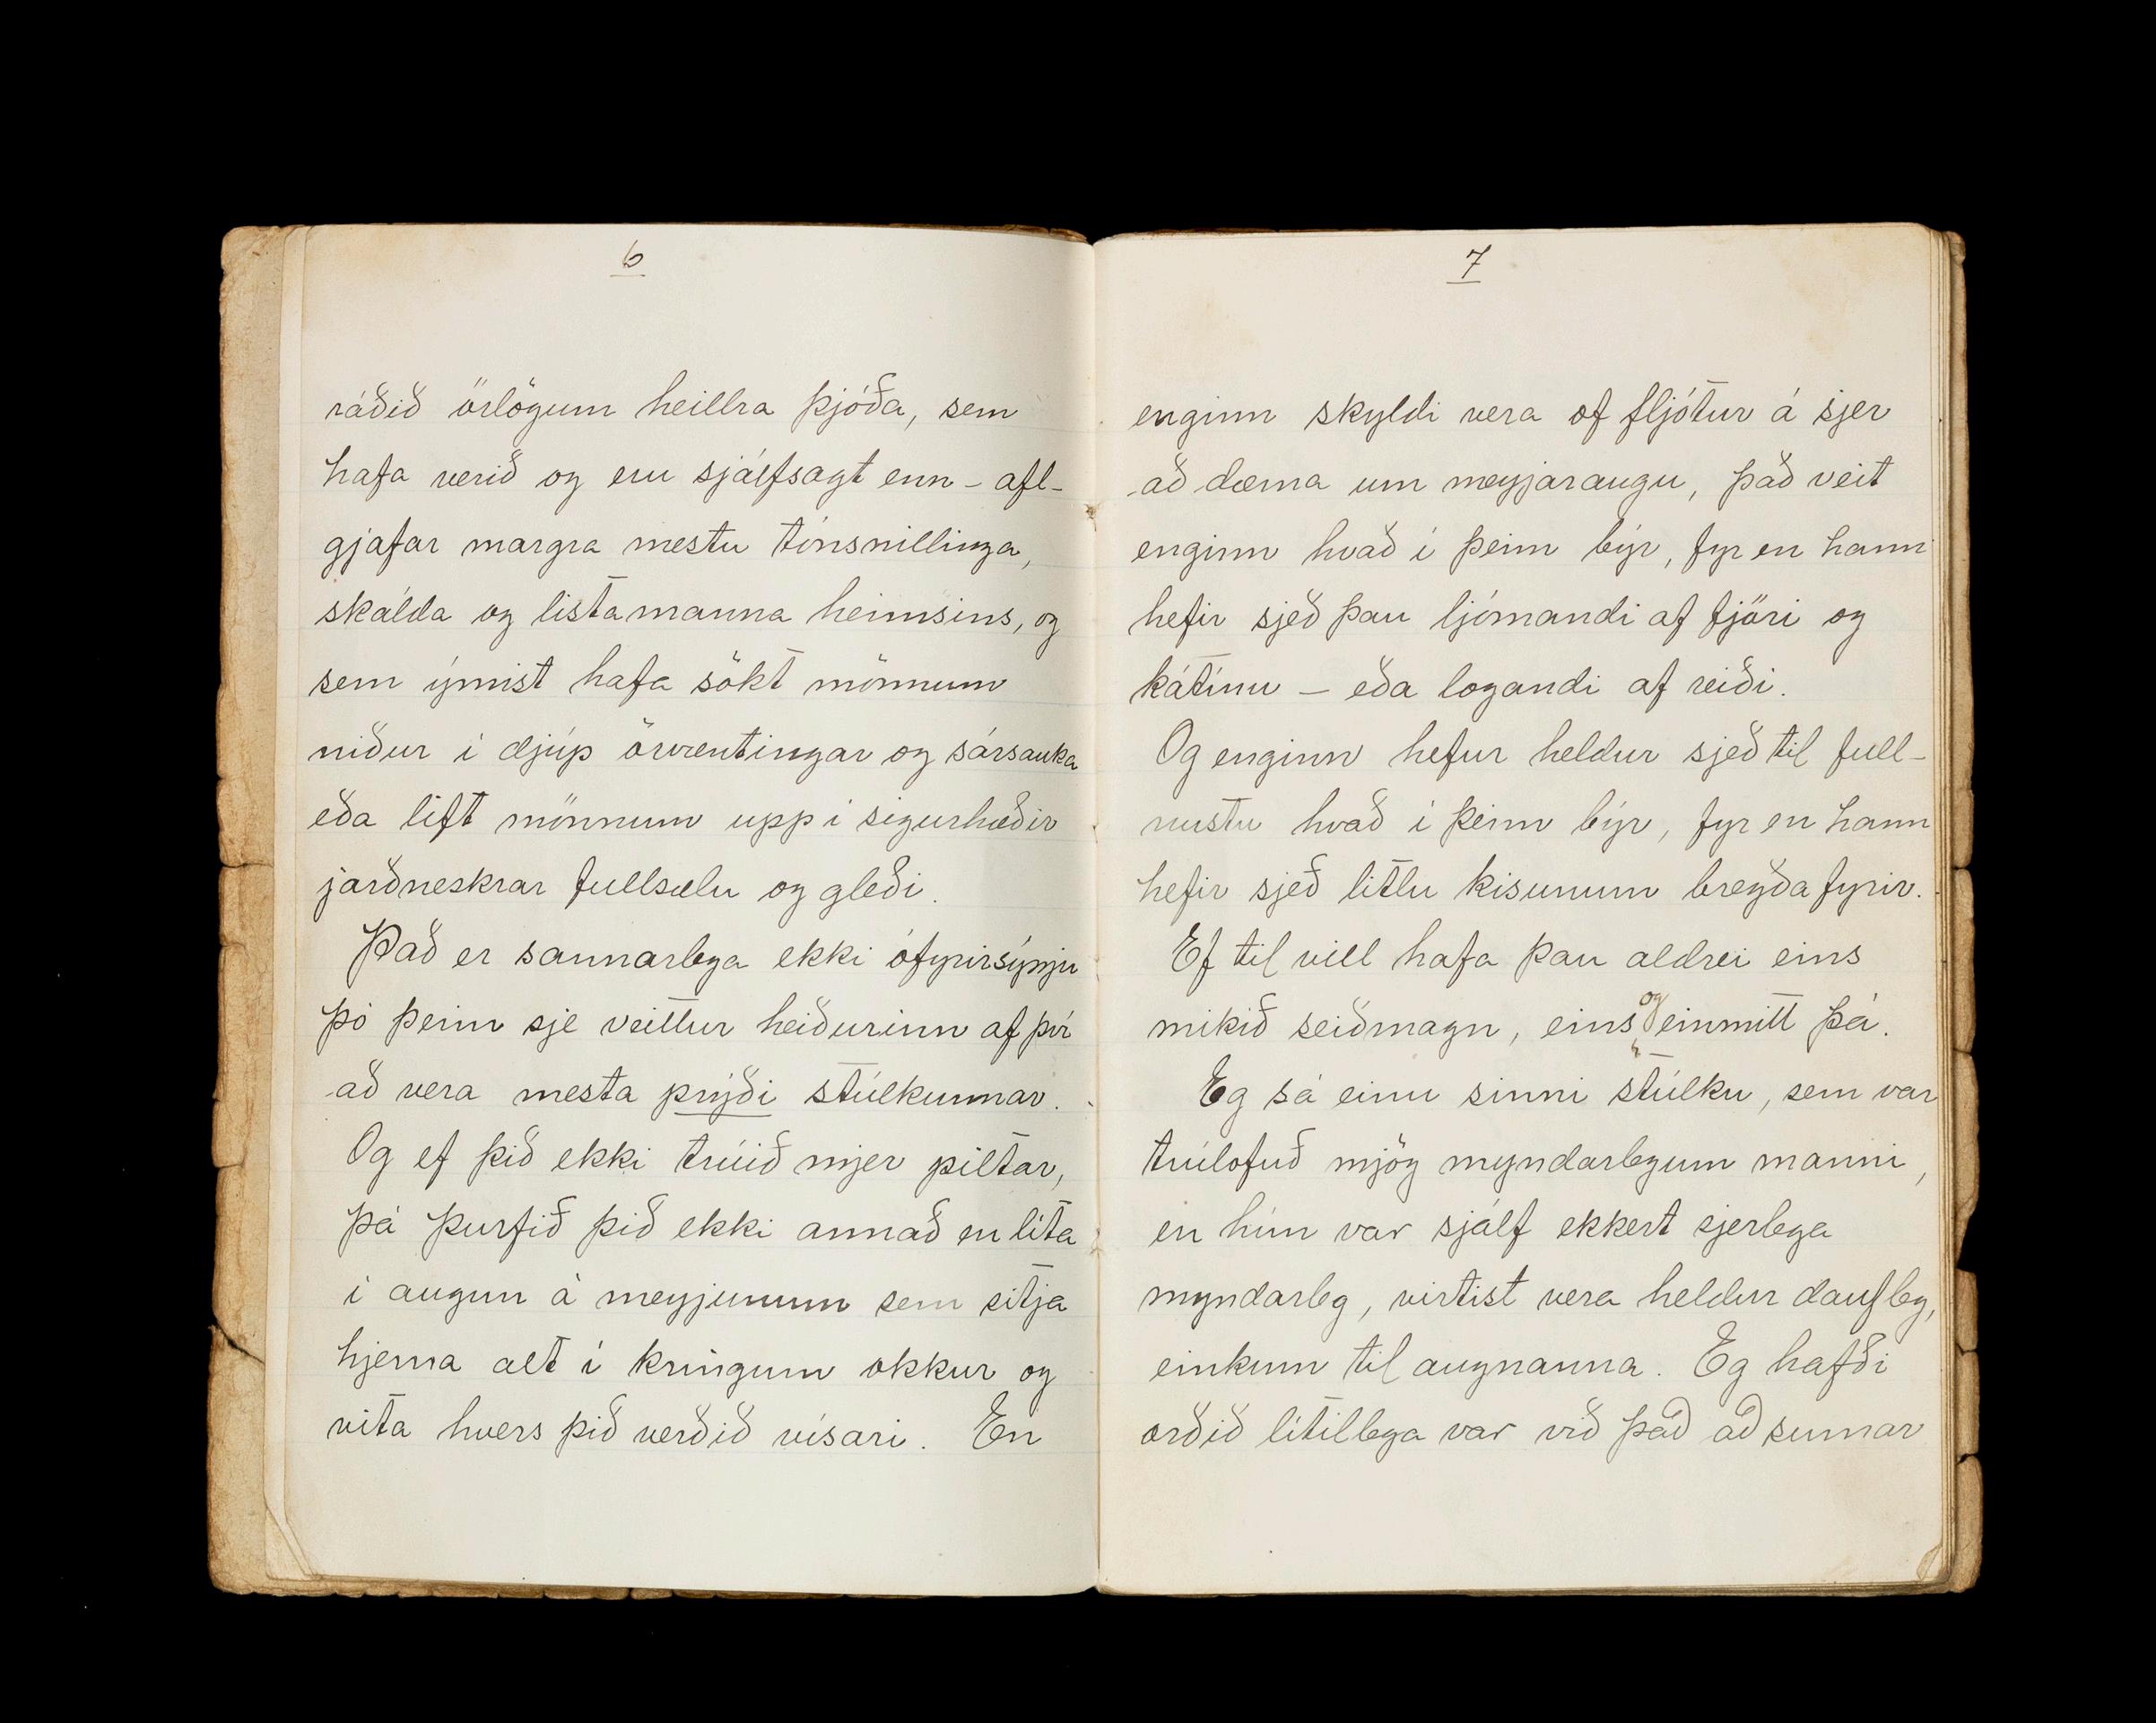 6
ráðið örlögum heillra þjóða, sem
hafa verið og eru sjálfsagt enn - afl-
gjafar margra mestu tónsnillinga,
skálda og listamanna heimsins, og
sem ýmist hafa sökt mönnum
niður í djúp örvæntingar og sársauka
eða lift mönnum upp í sigurhæðir
jarðneskrar fullsælu og gleði.
Það er sannarlega ekki ófyrirsýnju
þó þeim sje veittur heiðurinn af því
að vera mesta prýði stúlkunnar.
Og ef þið ekki trúið mjer piltar,
þá þurfið þið ekki annað en líta
í augun á meyjunum sem sitja
hjerna alt í kringum okkur og
vita hvers þið verðið vísari. En
7
enginn skyldi vera of fljótur á sjer
að dæma um meyjaraugu, það veit
enginn hvað í þeim býr, fyr en hann
hefir sjeð þau ljómandi af fjöri og
kátínu - eða logandi af reiði.
Og enginn hefur heldur sjeð til full-
nustu hvað í þeim býr, fyr en hann
hefir sjeð litlu kisunum bregða fyrir.
Ef til vill hafa þau aldrei eins
mikið seiðmagn, eins og einmitt þá.
Eg sá einu sinni stúlku, sem var
trúlofuð mjög myndarlegum manni,
en hún var sjálf ekkert sjerlega
myndarleg, virtist vera heldur daufleg,
einkum til augnanna. Eg hafði
orðið lítillega var við það að sumar